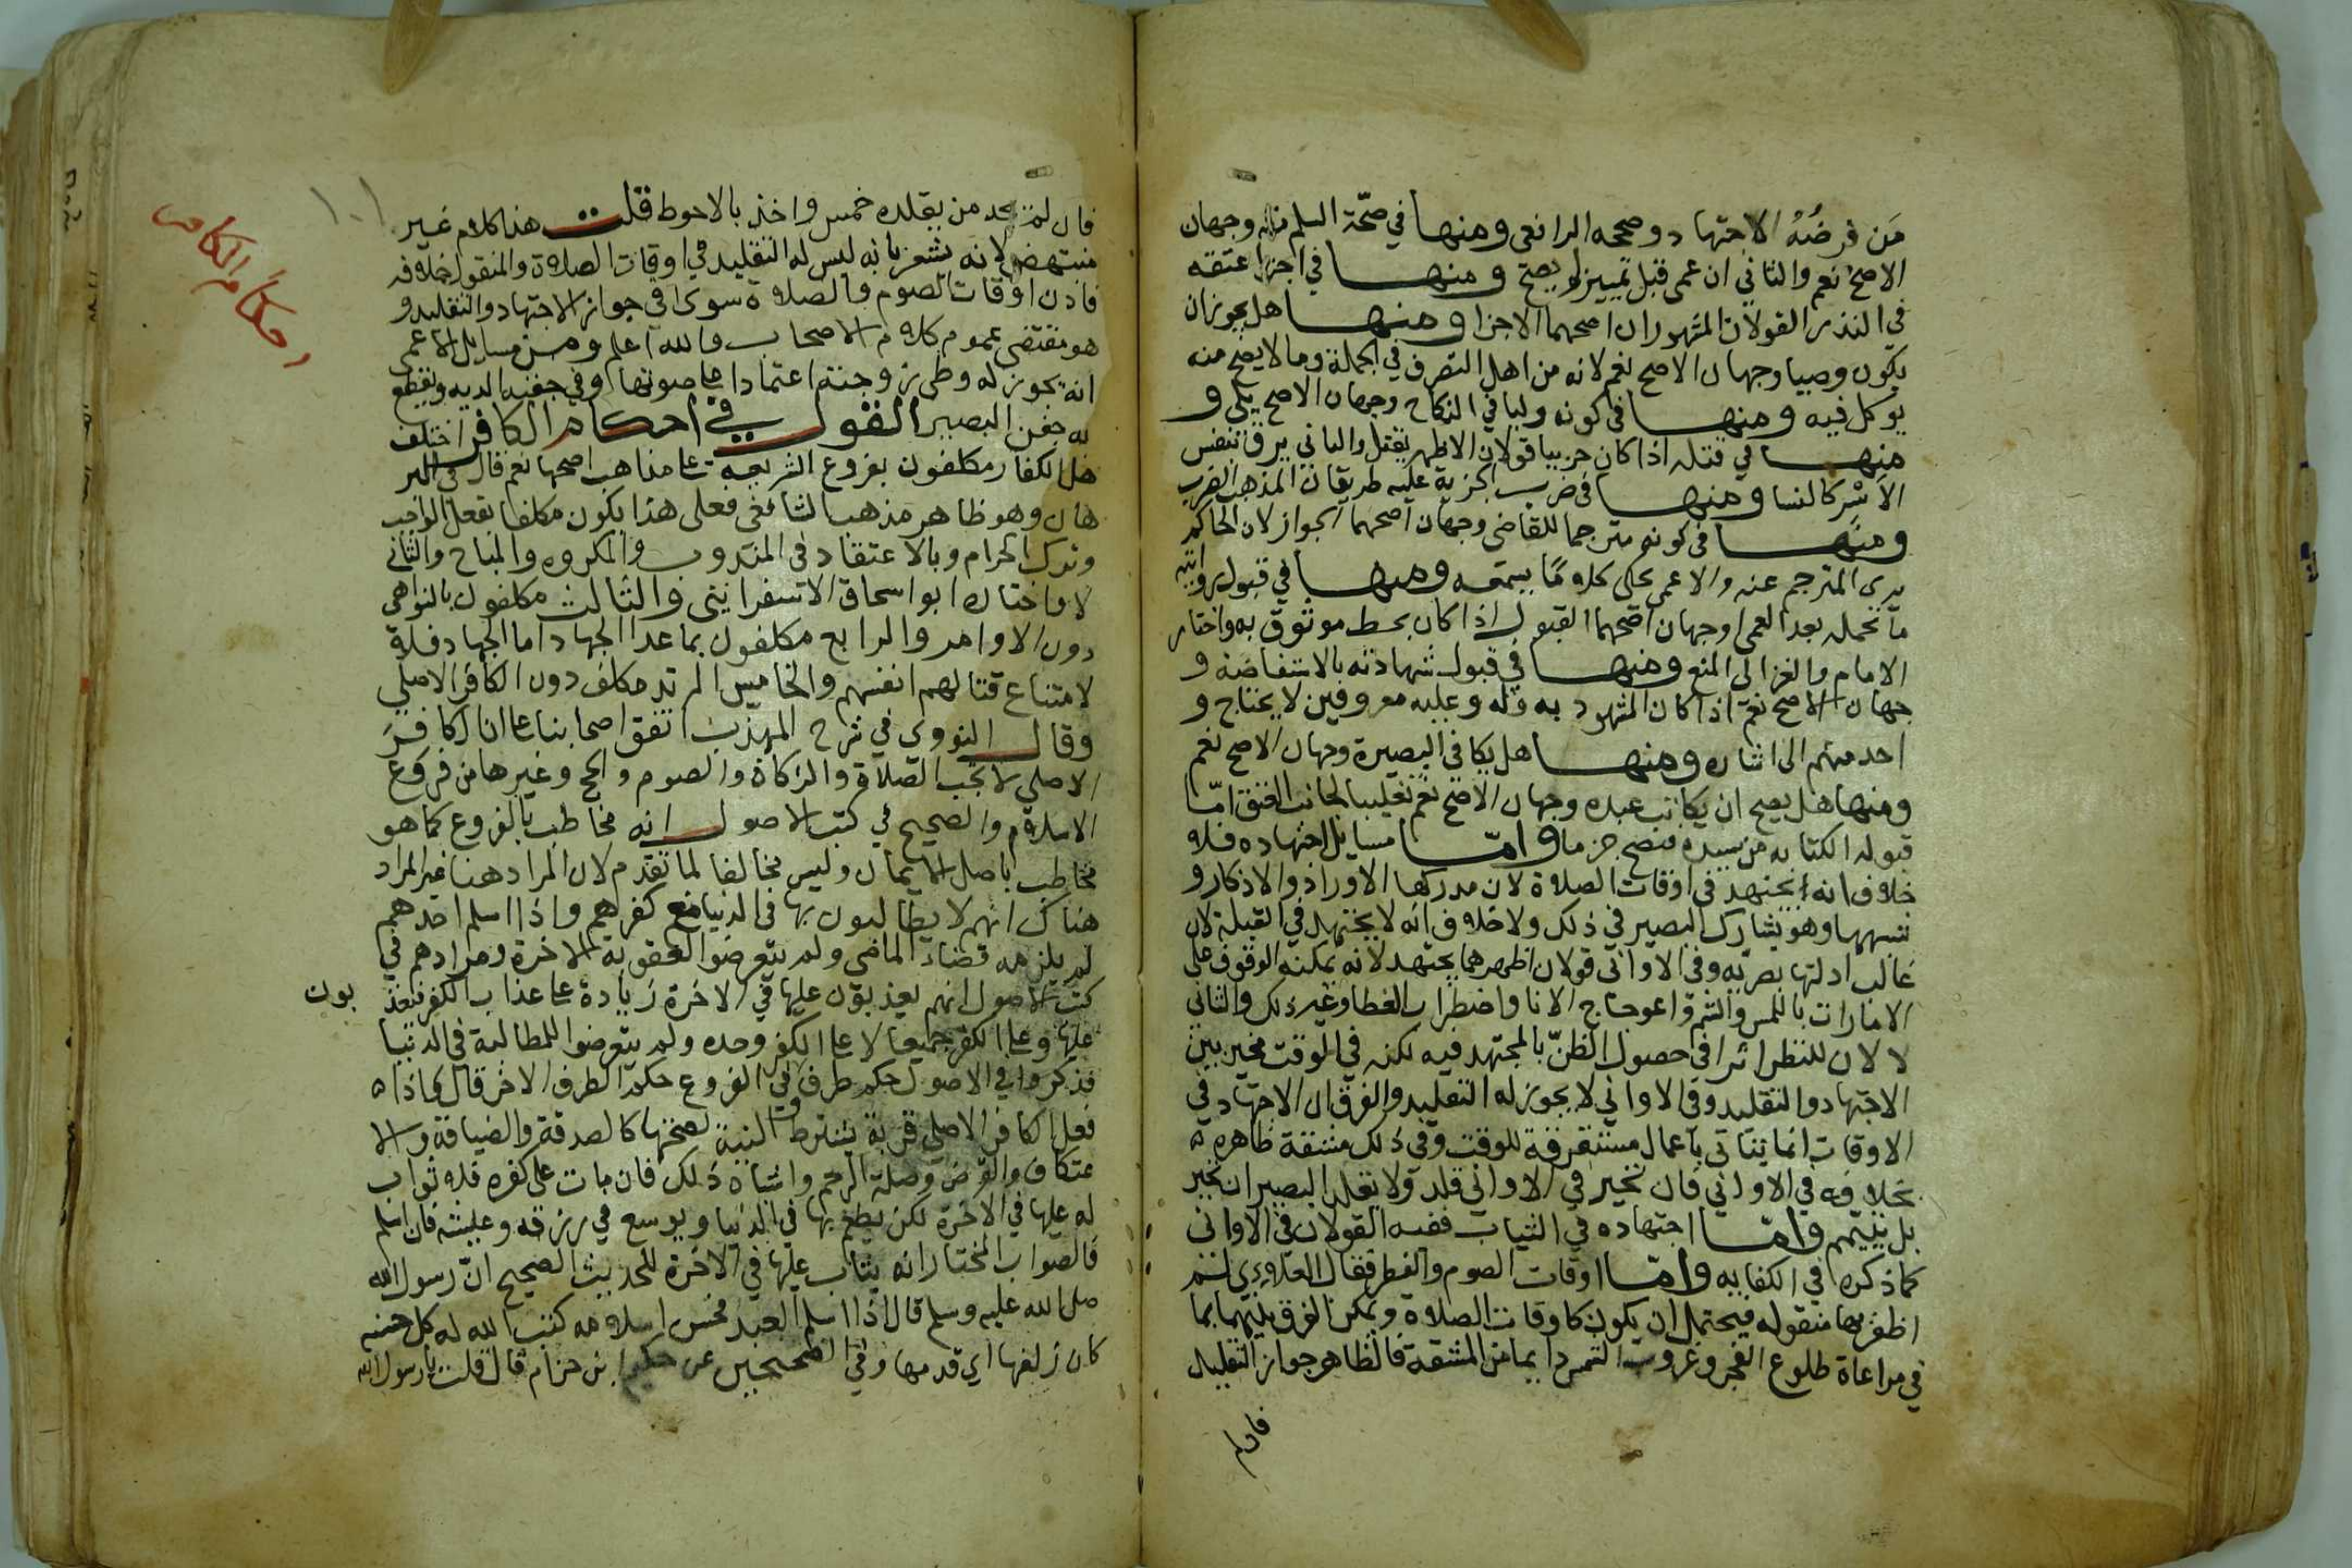 مَن فرضُهُ الاجتهاد وصححه الرافعى ومنها في صحّة السلم منه وجهان
الاصح نعم والثاني ان عمى قبل تمييزه لم يصح ومنها في اجزا عتقه
في النذر القولان المشهوران اصحهما الاجزا ومنها هل يجوز ان
يكون وصيا وجهان الاصح نعم لانه من اهل التصرف في الجملة وما لا يصح منه
يوكل فيه ومنها فى كونه وليا في النكاح وجهان الاصح يلى و
منها في قتله اذا كان حربيا قولان الاظهر يقتل والثاني يرق بنفس
الاسْر كالنسا ومنها فى ضرب الجزية عليه طريقان المذهب الضرب
ومنها فى كونه مترجما للقاضى وجهان اصحهما الجواز لان الحاكم
يرى المترجم عنه والاعمى يحكى كلاما يسمعه ومنها في قبول روايته
ما تحمله بعد العمى وجهان اصحهما القبول اذا كان بخط موثوق به واختار
الامام والغزالى المنع ومنها في قبول شهادته بالاستفاضة و
جهان الاصح نعم اذا كان المشهود به وله وعليه معروفين لا يحتاج و
احد منهم الى اشاره ومنها هل يكافى البصيرة وجهان الاصح نعم
ومنها هل يصح ان يكاتب عبده وجهان الاصح نعم تغليبا لجانب العتق امّا
قبوله الكتابه من سيده فتصح جزما وامّا مسايل اجتهاده فلا
خلاف انه يجتهد فى اوقات الصلاة لان مدركها الاوراد والاذكار و
شبهها وهو يشارك البصير في ذلك ولا خلاف انه لا يجتهد في القبلة لان
غالب ادلتها بصريه وفى الاوانى قولان اظهرهما يجتهد لانه يمكنه الوقوف على
الامارات باللمس والشم واعوجاج الانا واضطراب الغطا وغير ذلك والثانى
لا لان للنظر اثرا في حصول الظنّ بالمجتهد فيه لكنه في الوقت مخير بين
الاجتهاد والتقليد وفى الاواني لا يجوز له التقليد والفرق ان الاجتهاد في
الاوقات انما يتاتى باعمال مستغرقة للوقت وفى ذلك مشقة ظاهره
بخلافه في الاواني فان تحير في الاوانى قلد ولا يقلد البصير ان تحير
بل يتيمم وامّا اجتهاده في الثياب ففيه القولان فى الاوانى
كما ذكره في الكفايه وامّا اوقات الصوم والفطر فقال العلاءى لم
اظفر بها منقوله فيحتمل ان يكون كاوقات الصلاة ويمكن الفرق بينهما بما
في مراعاة طلوع الفجر وغروب الشمس دايما من المشقة فالظاهر جواز التقليد
فان لم
فان لم يجد من يقلده خمس واخذ بالاحوط قلت هذا كلام غير
منتهض لانه يشعر بانه ليس له التقليد في اوقات الصلاة والمنقول خلافه
فاذن اوقات الصوم والصلاة سوى في جواز الاجتهاد والتقليد و
هو مقتضى عموم كلام الاصحاب والله اعلم ومن مسايل الاعمى
انه يجوز له وطى زوجته اعتمادا على صوتها وفى جفنيه الديه ويقطع
به جفن البصير القول في احكام الكافر اختلف
هل الكفار مكلفون بفروع الشريعة على مذاهب اصحها نعم قال في البر
هان وهو ظاهر مذهب الشافعى فعلى هذا يكون مكلفا بفعل الواجب
وترك الحرام وبالاعتقاد فى المندوب والمكروه والمباح والثاني
لا واختاره ابو اسحاق الاسفرايني والثالث مكلفون بالنواهى
دون الاوامر والرابع مكلفون بما عدا الجهاد اما الجهاد فلا
لامتناع قتالهم انفسهم والخامس المرتد مكلف دون الكافر الاصلي
وقال النووي في شرح المهذّب اتفق اصحابنا على ان الكافر
الاصلي لا تجب الصلاة والزكاة والصوم والحج وغيرها من فروع
الاسلام والصحيح في كتب الاصول انه مخاطب بالفروع كما هو
مخاطب باصل الايمان وليس مخالفا لما تقدم لان المراد هنا غير المراد
هناك انهم لا يطالبون بها فى الدنيا مع كفرهم واذا اسلم احدهم
لم يلزمه قضاء الماضى ولم يتعرضوا لعقوبة الاخرة ومرادهم في
كتب الاصول انهم يعذبون عليها في الاخرة زيادة على عذاب الكفر فيعذ
بون
عليها وعلى الكفر جميعا لا على الكفر وحده ولم يتعرضوا للمطالبة في الدنيا
فذكروا في الاصول حكم طرف وفى الفروع حكم الطرف الاخر قال فاذا
فعل الكافر الاصلي قربة يشترط النية لصحتها كالصدقة والضيافة والا
عتكاف والقرض وصلة الرحم واشباه ذلك فان مات على كفره فلا ثواب
له عليها في الاخرة لكن يطعم بها في الدنيا ويوسع في رزقه وعيشه فان اسلم
فالصواب المختار انه يثاب عليها في الاخرة للحديث الصحيح انّ رسول الله
صلى الله عليه وسلم قال اذا اسلم العبد فحسن اسلامه كتب الله له كل حسنه
كان زلفها اي قدمها وفي الصحيحين عن حكيم بن حزام قال قلت يا رسول الله
١٠١
احكام الكافر